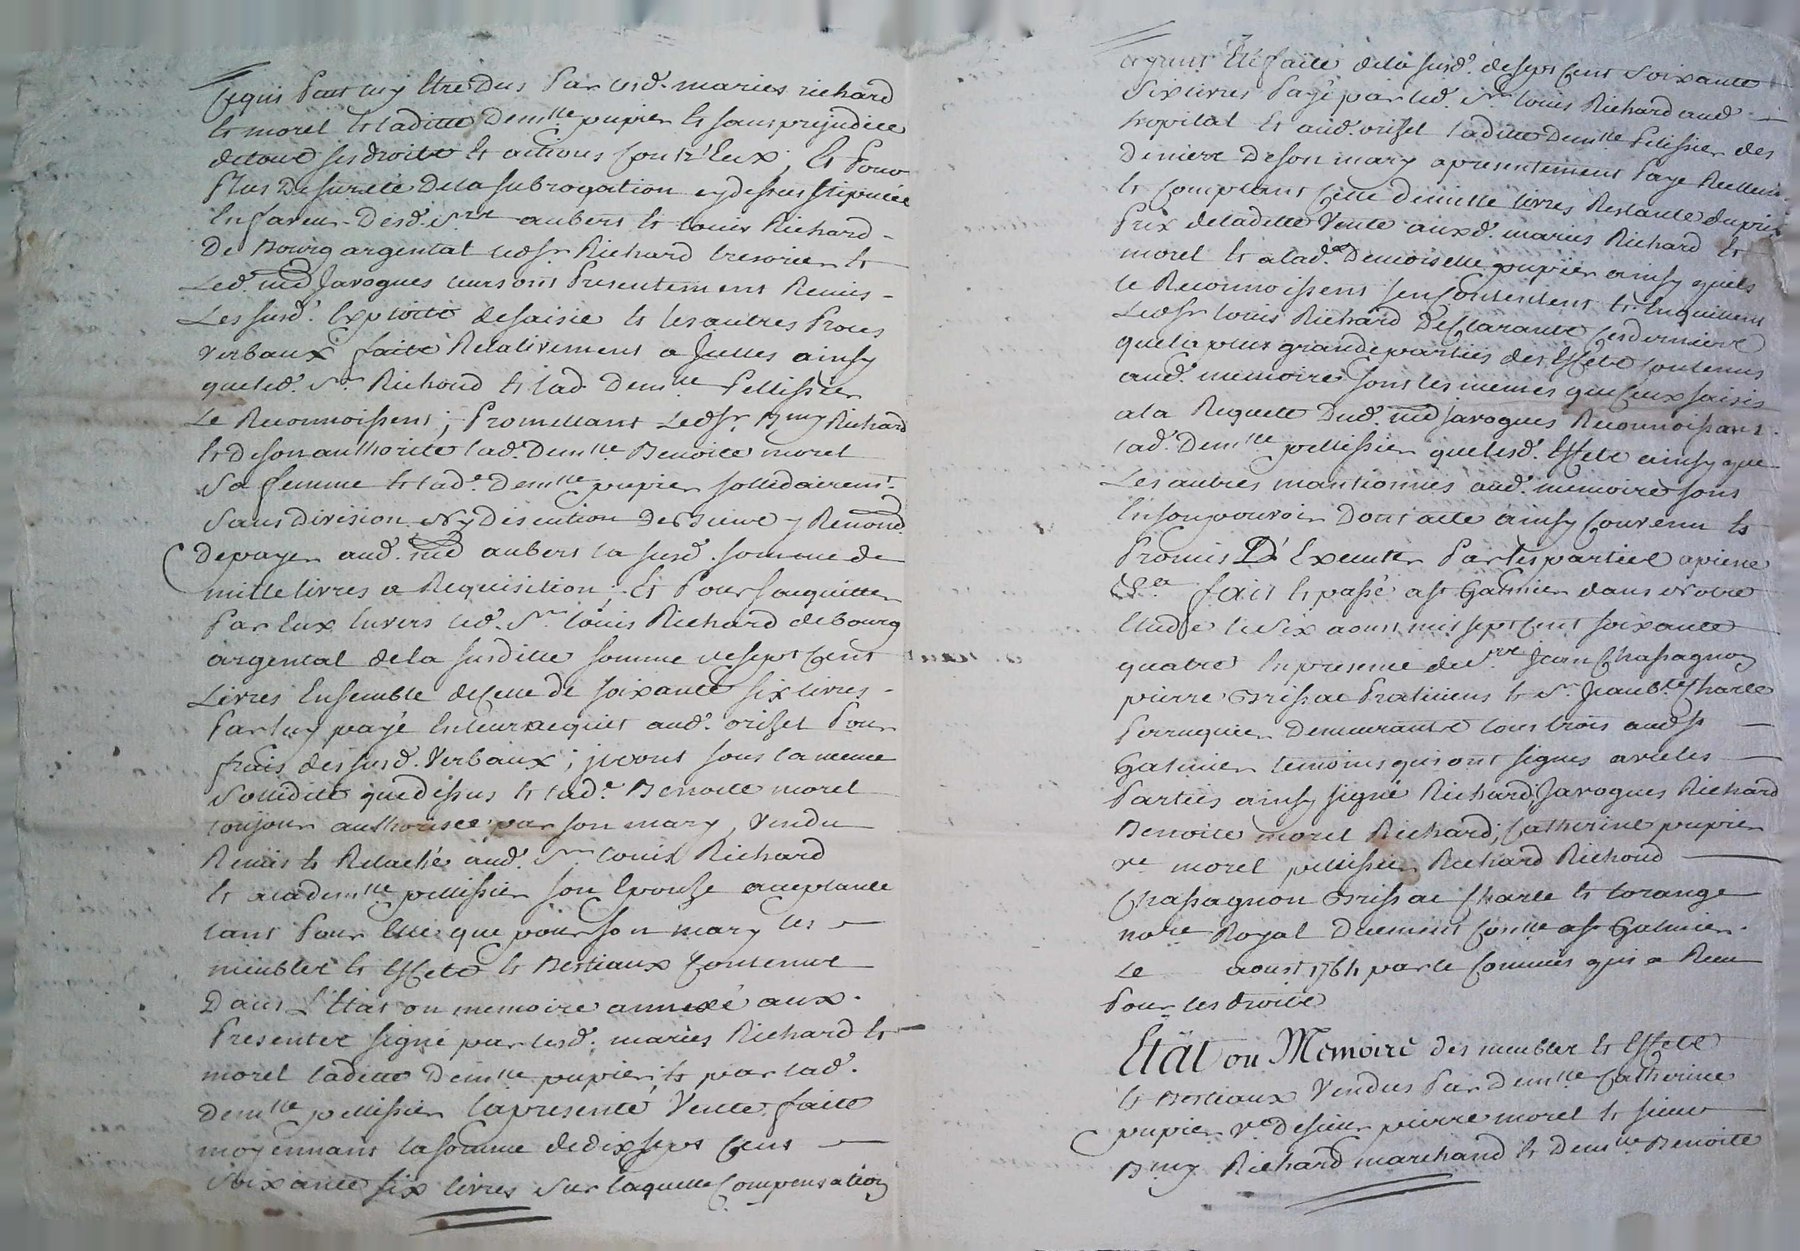 Ce qui Peut luy Etre Dus Par lesd. maries richard
et morel et laditte Demlle pupier et sans prejudice
de tout ses droits et actions Contr'Eux, Et Pour
Plus De sureté De la subrogation cy dessus stipulée
En faveur Desd. Srs aubert et louis Richard
De Bourg argental led. sr Richard tresorier et
Led. Me Javogues leurs ont Presentement Remis
Les susd. Exploits de saisie et les autres Proces
Verbaux faits Relativement a Jcelles ainsy
que led. Sr Richard et lad. Demlle Pellissier
Le Reconnoissent; Promettant Led. Sr Bmy Richard
Et de son authorité lad. Demlle Benoite morel
Sa femme et lad. Demlle pupier sollidairemt
Sans division Ny discution De Biens y Renond.
De payer aud. Me aubert la susd. somme de
mille livres a Requisition; Et Pour s'acquitter
Par Eux Envers led. Sr louis Richard de bourg
argental de la susditte somme de sept Cent
Livres Ensemble de Celle de soixante six livres
Par luy payé En leur acquit aud. orisel Pour
frais des susd. Verbaux; j'ceux sous la meme
Sollidité que dessus et lad. Benoite morel
toujour authorisée par son mary, Vendu
Remis et Relaché aud. Sr louis Richard
et a lad. Demlle pellissier son Epouse acceptante
tant Pour Elle que pour son mary les
meubles et Effets et Bestiaux Contenus
Dans L'Etat ou memoire annexé aux
Presentes signé par lesd. maries Richard et
morel laditte Demlle pupier, et par lad.
Demlle pellissier la presente Vente faitte
moyennant la somme de dix sept Cent
Soixante six livres Sur laquelle Compensation
ayant Eté faitte de la susd. de sept Cent Soixante
Six livres Payé par led. Sr louis Richard aud.
hopital et aud. orisel laditte Demlle Pelissier des
Deniers De son mary a presentement Payé Reellemt
et Comptant Celle de mille livres Restante du
Prix de laditte Vente auxd. maries Richard et
morel et a lad. Demoiselle pupier ainsy qu'ils
le Reconnoissent s'en Contentent et En quittent
Led. Sr louis Richard Desclarants Ces derniers
que la plus grande parties des Effets Contenus
aud. memoire sont les memes que Ceux saisis
a la Requete Dud. Me Javogues Reconnoissant
lad. Demlle pellissier que lesd. Effets ainsy que
Les autres mantionnés aud. memoire sont
En son pouvoir Dont acte ainsy Convenu et
Promis D'Executer Par les parties a piene
&a fait et passé a St Galmier dans Notre
Etude le six aoust mil sept Cent soixante
quatre En presence de Srs Jean Chassagnon
pierre Grissac Praticiens et Sr Jean Bte Charle
Perruquier Demeurants tous trois aud. St
Galmier temoins qui ont signes avec les
Parties ainsy signé Richard, Javogues Richard
Benoite morel Richard, Catherine pupier
ve morel pellissier Richard Richard
Chassagnon Grissac Charle et lorange
nore Royal Duement Conlle a St Galmier
Le aoust 1764 par le Commis qui a Recu
Pour les droits
Etat ou Memoire des meubles et Effets
et Bestiaux Vendus Par Demlle Catherine
pupier ve de sieur pierre morel et sieur
Bmy Richard marchand et Demlle Benoite